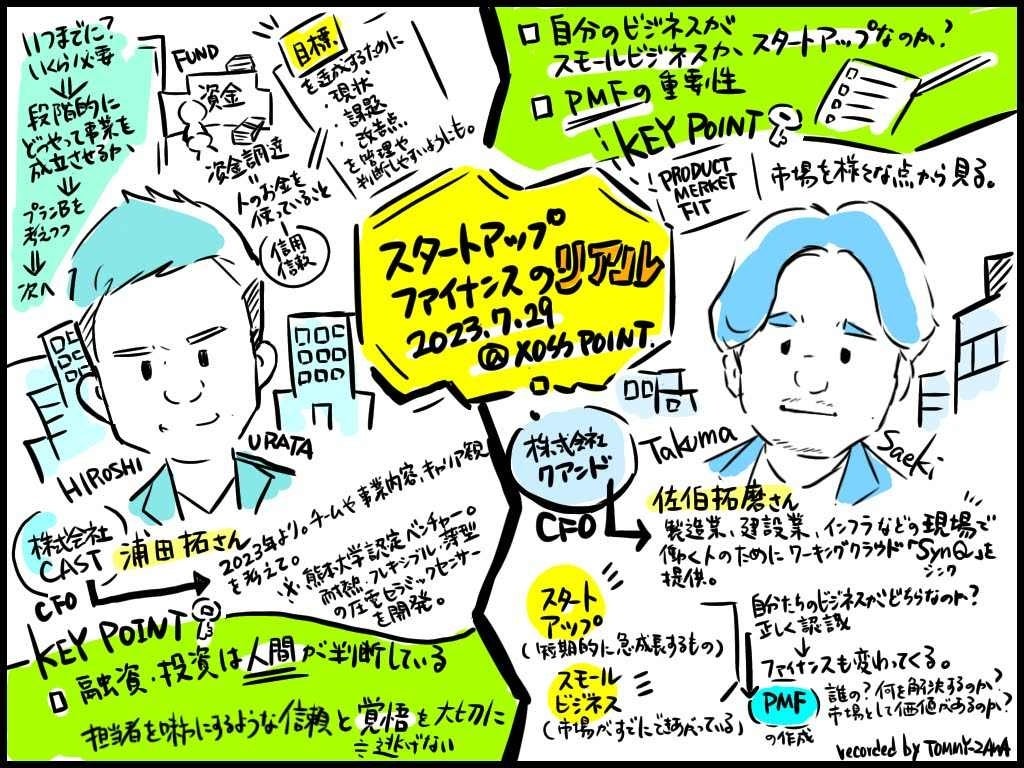 スタートアップ
ファイナンスのリアル
2023.7.29
@ XOSS POINT.
いつまでに?
いくら必要
段階的に
どうやって事業を
成立させるか、
プランBを
考えつつ
次へ
FUND
資金
資金調達
=
人のお金を
使っていること
信用
信頼
目標
を達成するために
・現状
・課題
・改善点
を管理や
判断しやすいようにも。
HIROSHI
URATA
株式会社
CAST
浦田拓さん
CFO
2023年より。チームや事業内容、キャリア観
を考えて。
※熊本大学認定ベンチャー。
耐熱、フレキシブル、薄型
の圧電セラミックセンサー
を開発。
KEY POINT
融資・投資は人間が判断している
担当者を味方にするような信頼と覚悟を大切に
逃げない
自分のビジネスが
スモールビジネスか、スタートアップなのか?
PMFの重要性
KEY POINT
PRODUCT
MERKET
FIT
市場を様々な点から見る。
Takuma
Saeki
株式会社
クアンド
CFO
佐伯拓磨さん
製造業、建設業、インフラなどの現場で
働く人のためにワーキングクラウド「SynQ」を
シンク
提供。
スタート
アップ
(短期的に急成長するもの)
スモール
ビジネス
(市場がすでにできあがっている)
自分たちのビジネスがどちらなのか?
正しく認識
ファイナンスも変わってくる。
PMF
の作成
誰の?何を解決するのか?
市場として価値があるのか?
recorded by TOMMY-ZAWA